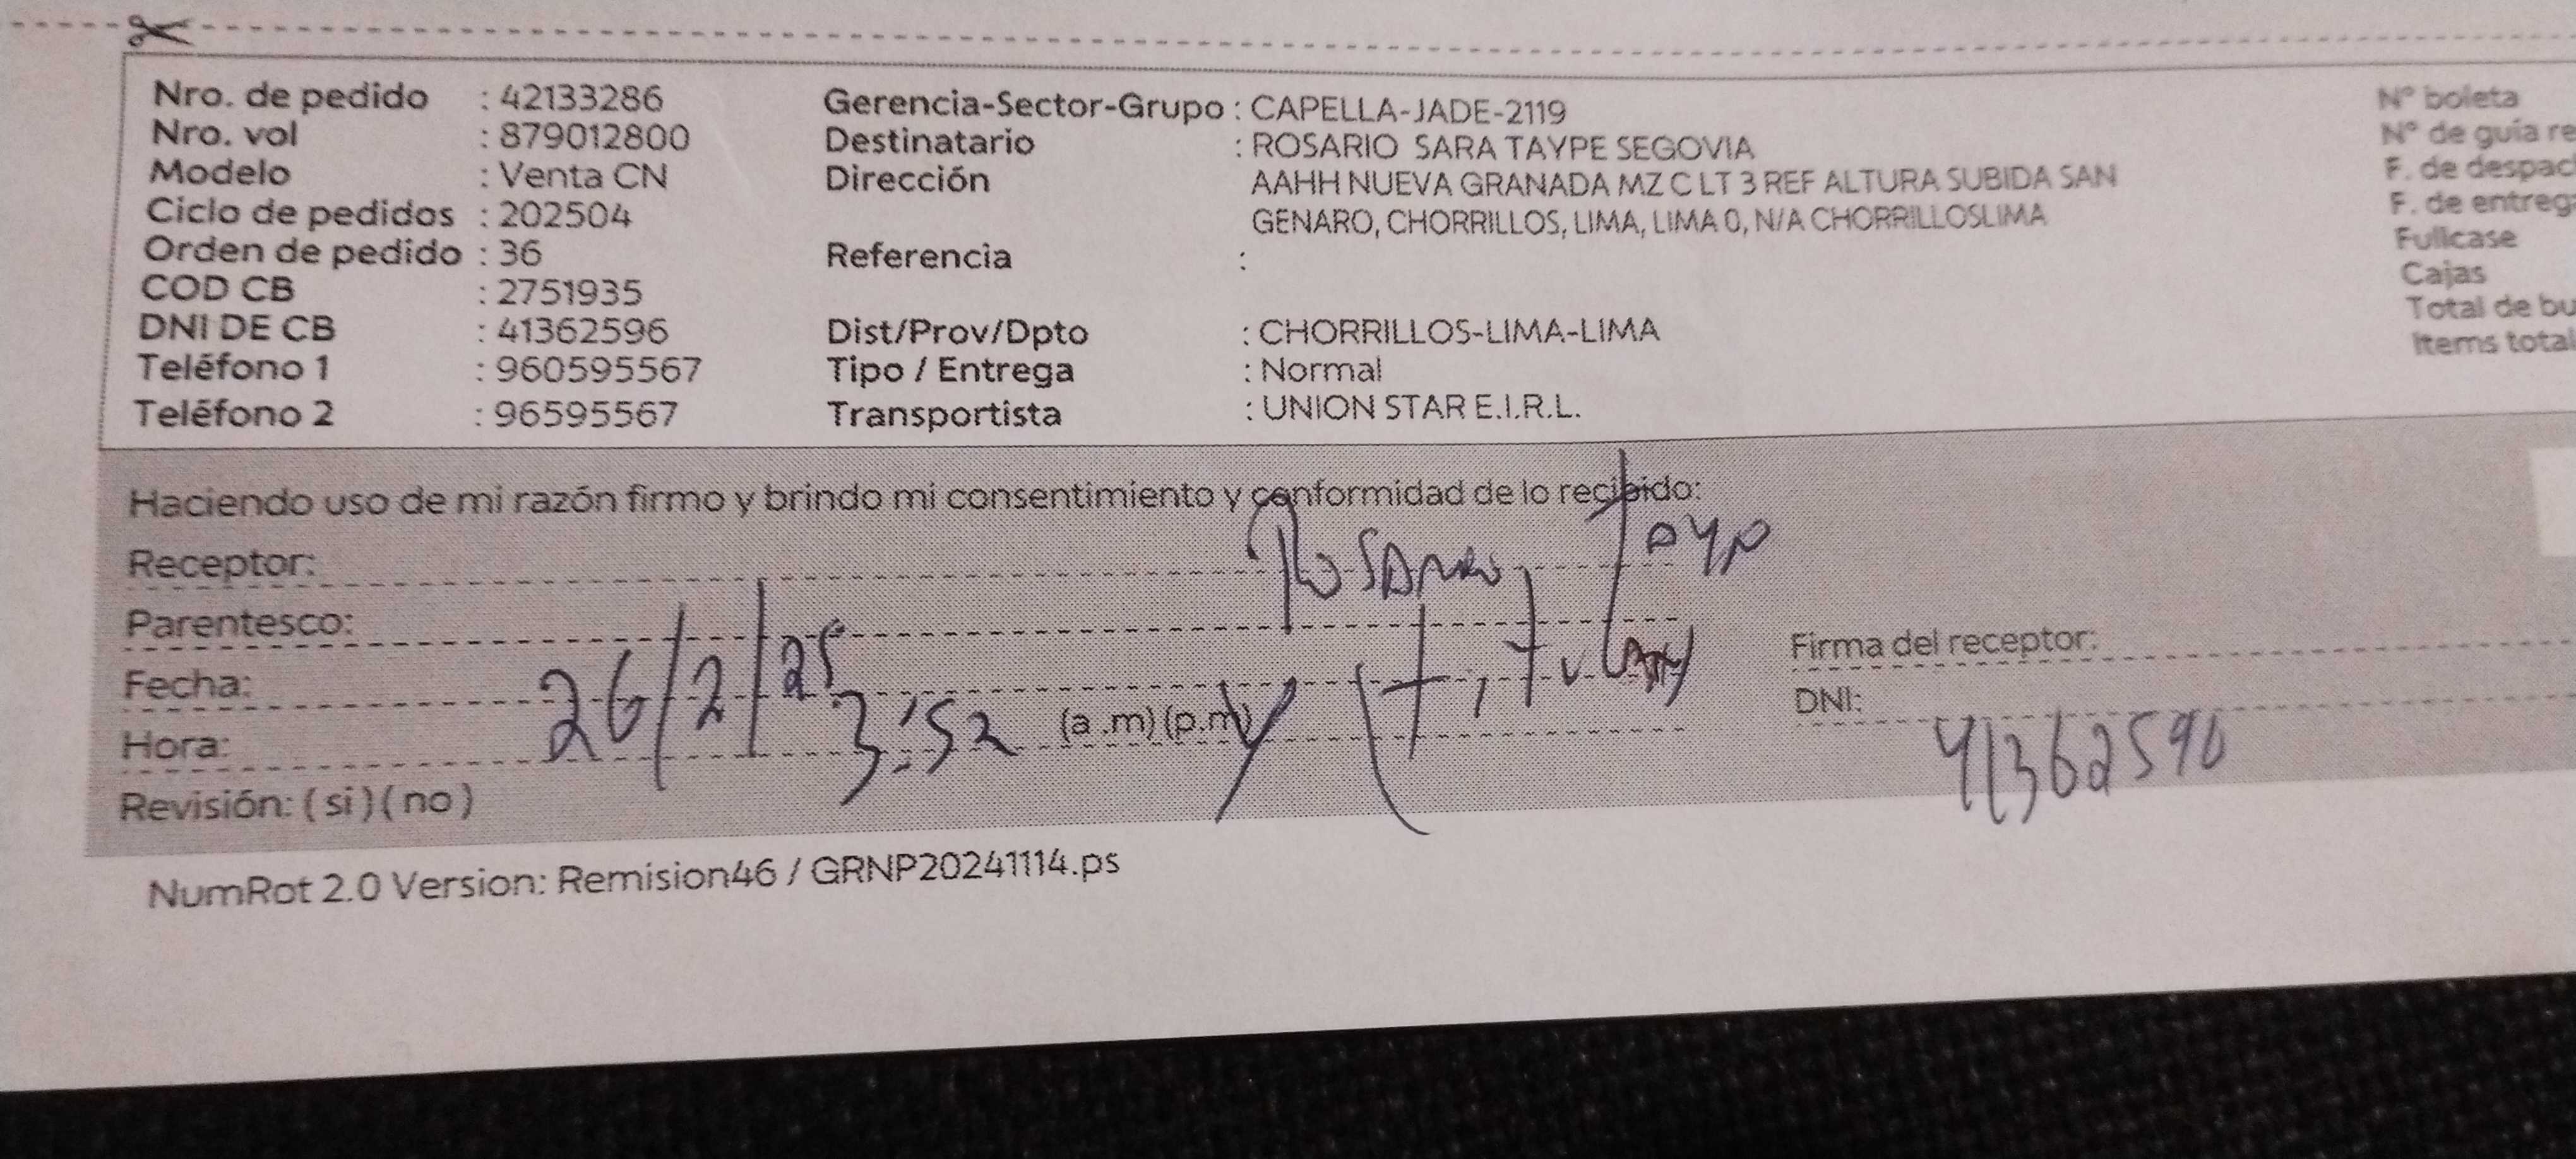 Nro. de pedido : 42133286
Nro. vol : 879012800
Modelo : Venta CN
Ciclo de pedidos : 202504
Orden de pedido : 36
COD CB : 2751935
DNI DE CB : 41362596
Teléfono 1 : 960595567
Teléfono 2 : 96595567
Gerencia-Sector-Grupo : CAPELLA-JADE-2119
Destinatario : ROSARIO SARA TAYPE SEGOVIA
Dirección AAHH NUEVA GRANADA MZ C LT 3 REF ALTURA SUBIDA SAN
GENARO, CHORRILLOS, LIMA, LIMA 0, N/A CHORRILLOSLIMA
Referencia :
Dist/Prov/Dpto : CHORRILLOS-LIMA-LIMA
Tipo / Entrega : Normal
Transportista : UNION STAR E.I.R.L.
N° boleta
N° de guía re
F. de despac
F. de entrega
Fullcase
Cajas
Total de bu
Items total
Haciendo uso de mi razón firmo y brindo mi consentimiento y conformidad de lo recibido:
Receptor:
Parentesco:
Fecha: 26/2/25
Hora: 3:52 (a .m) (p.m)
Revisión: ( si ) ( no )
Firma del receptor:
DNI: 41362596
NumRot 2.0 Version: Remision46 / GRNP20241114.ps